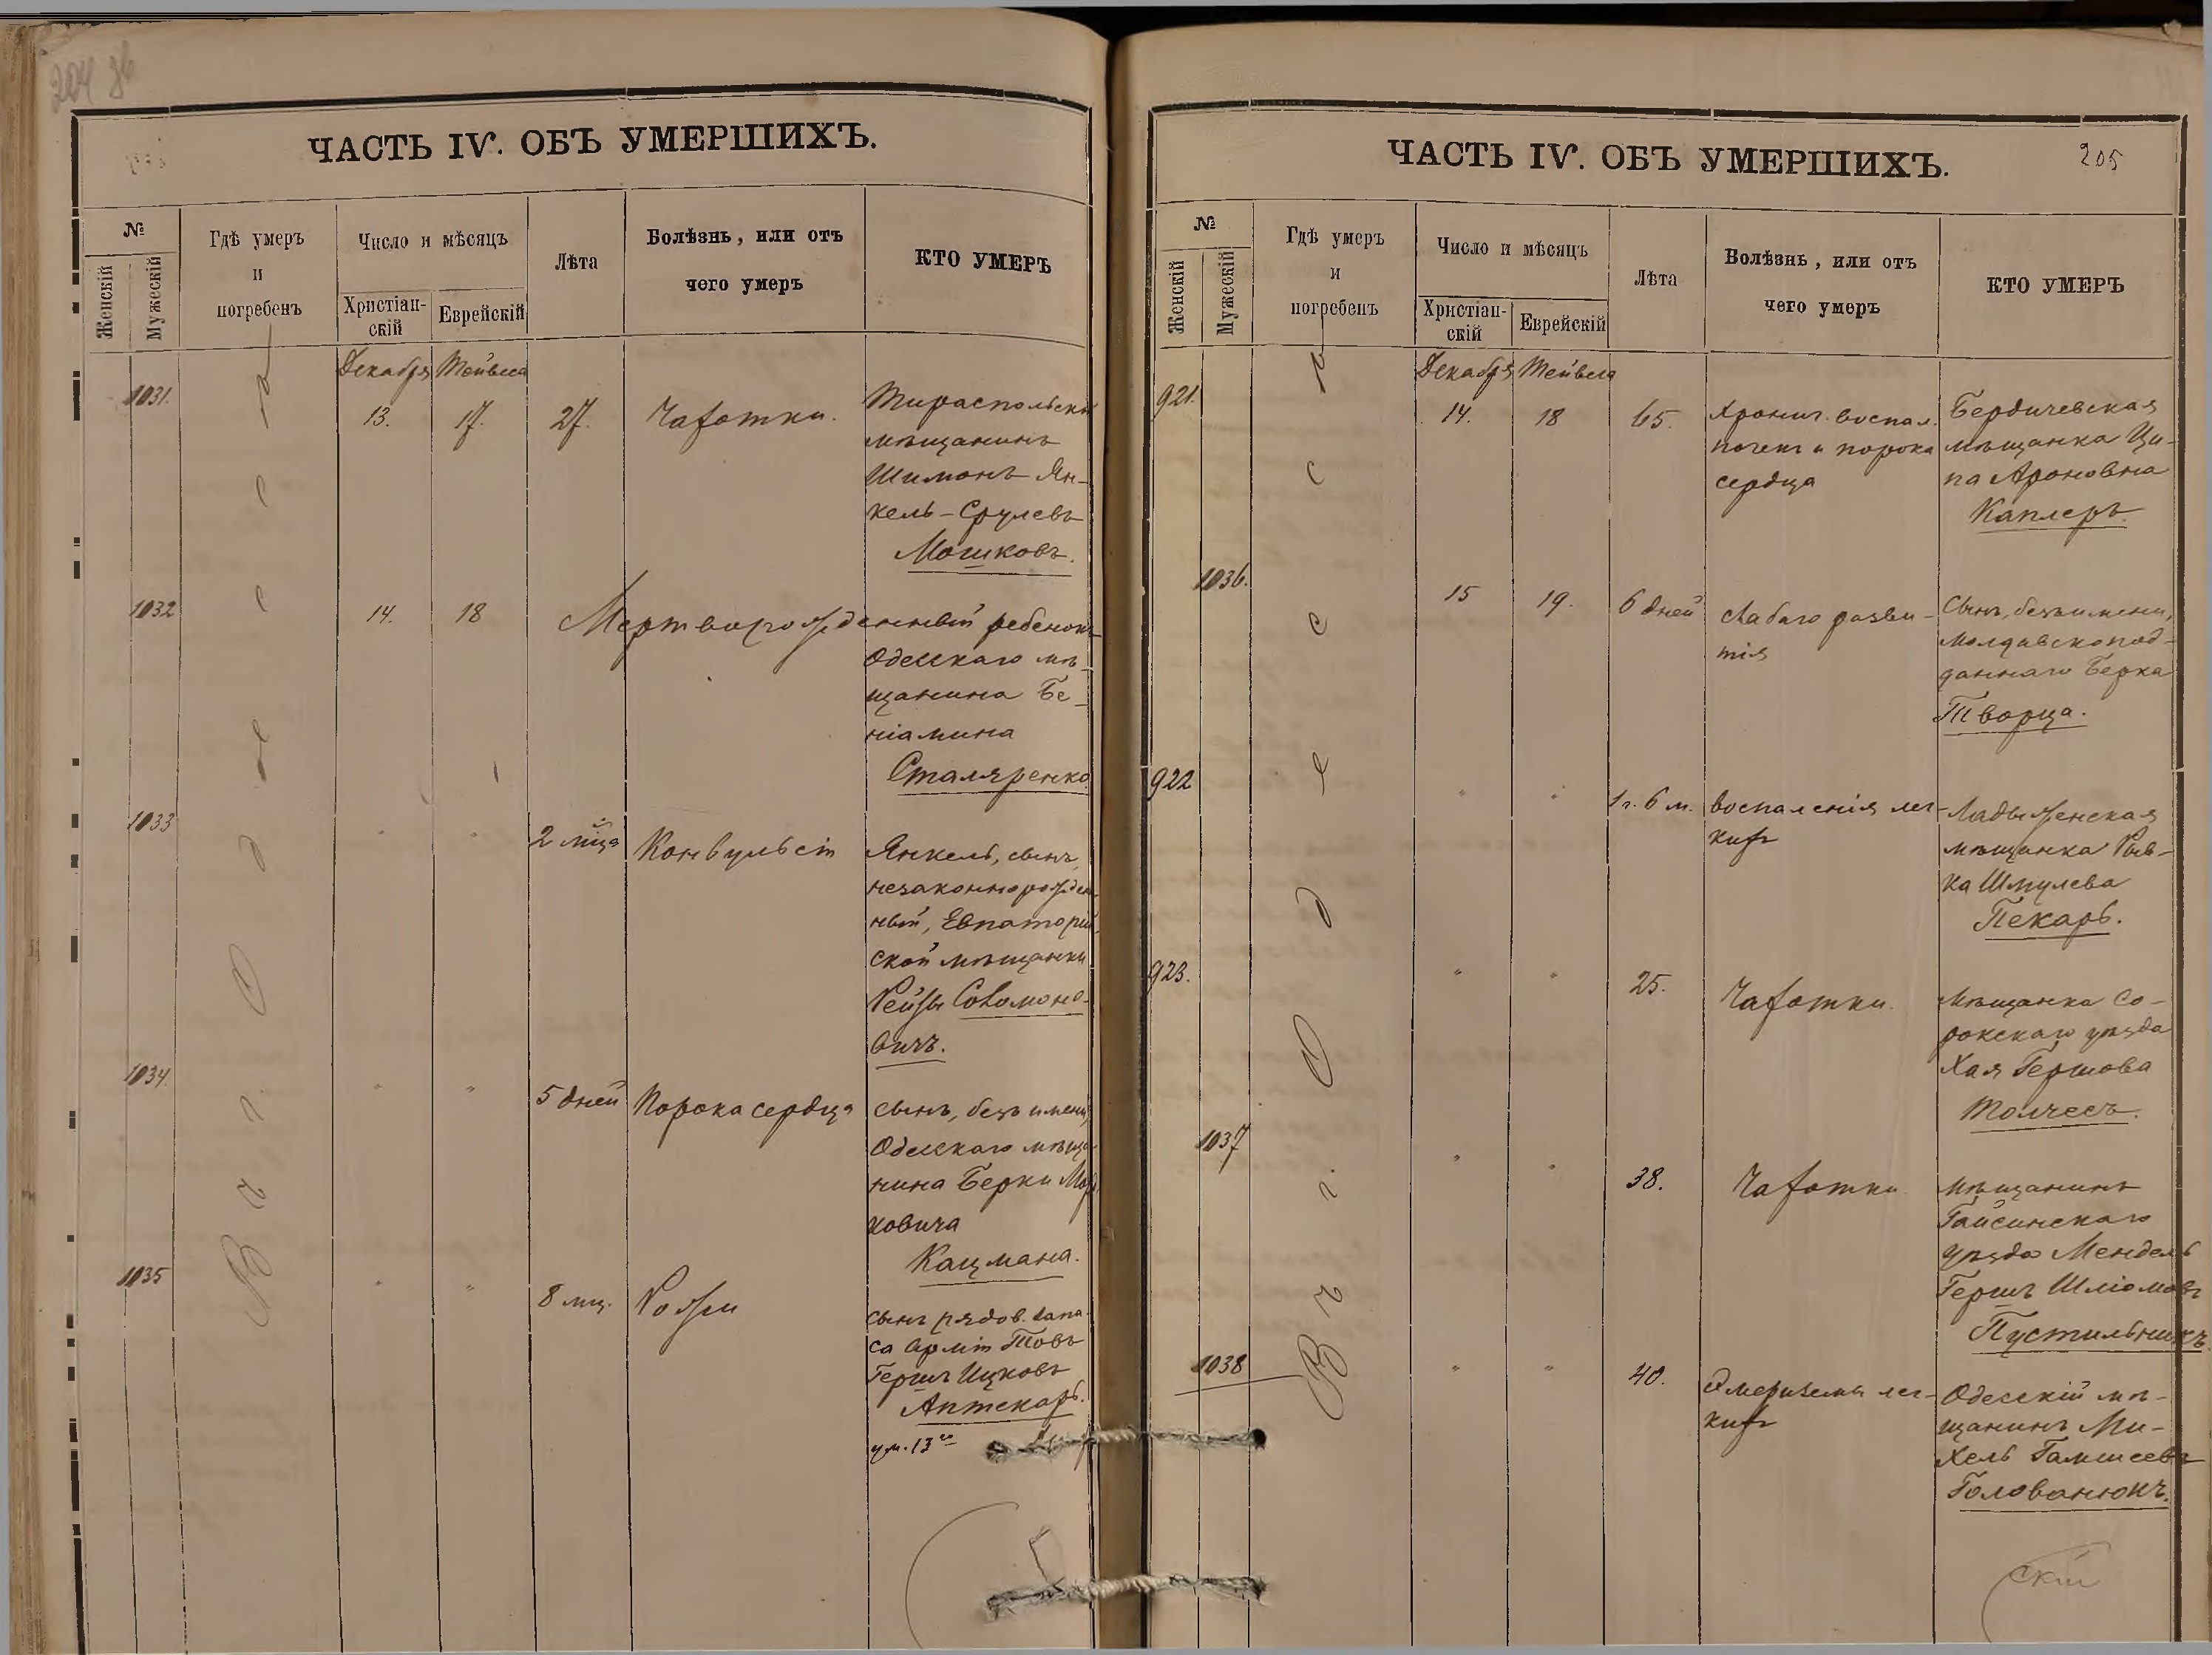 ЧАСТЬ IV. ОБЪ УМЕРШИХЪ.
№
Женскій
Мужескій
Гдѣ умеръ
и
погребенъ
Число и мѣсяцъ
Христіан-
скій
Еврейскій
Лѣта
Болѣзнь, или отъ
чего умеръ
КТО УМЕРЪ
Въ г. Одессѣ
Декабря Тейвеса
1031. 13. 17. 27. Чахотки. Тираспольскій
мѣщанинъ
Шимонъ Ян-
кель-Срулевъ
Мошковъ.
1032 14. 18 Мертворожденный ребенокъ
Одесскаго мѣ-
щанина Бе-
ніамина
Сталяренко
1033 " " 2 мца Конвульсіи Янкель, сынъ
незаконнорожден-
ный, Евпаторій-
ской мѣщанки
Рейзы Соломоно-
вичъ.
1034. " " 5 дней Порока сердца сынъ, безъ имени,
Одесскаго мѣща-
нина Берки Мор-
ковича
Кацмана.
1035 " " 8 мц. Рожи сынъ рядов. запа-
са арміи Товъ
Гершъ Ицковъ
Аптекарь.
ум. 13го
ЧАСТЬ IV. ОБЪ УМЕРШИХЪ.
205
№
Женскій
Мужескій
Гдѣ умеръ
и
погребенъ
Число и мѣсяцъ
Христіан-
скій
Еврейскій
Лѣта
Болѣзнь, или отъ
чего умеръ
КТО УМЕРЪ
Въ г. Одессѣ
Декабря Тейвеса
921. 14. 18 65. Хронич. воспал. Бердичевская
почекъ и порока мѣщанка Ци-
сердца па Ароновна
Каплеръ.
1036. 15 19. 6 дней Слабаго разви- Сынъ, безъ имени,
тія молдавскопод-
даннаго Берка
Творца.
922 " " 1 г. 6 м. воспаленія лег- Ладыженская
кихъ мѣщанка Рив-
ка Шмулева
Пекарь.
923. " " 25. Чахотки. Мѣщанка Со-
рокскаго уѣзда
Хая Гершова
Толчесъ.
1037 " " 38. Чахотки мѣщанинъ
Гайсинскаго
уѣзда Мендель
Гершъ Шліомовъ
Пустильникъ
1038 " " 40. Эмфиземы лег- Одесскій мѣ-
кихъ щанинъ Ми-
хель
Голованюкъ.
скій